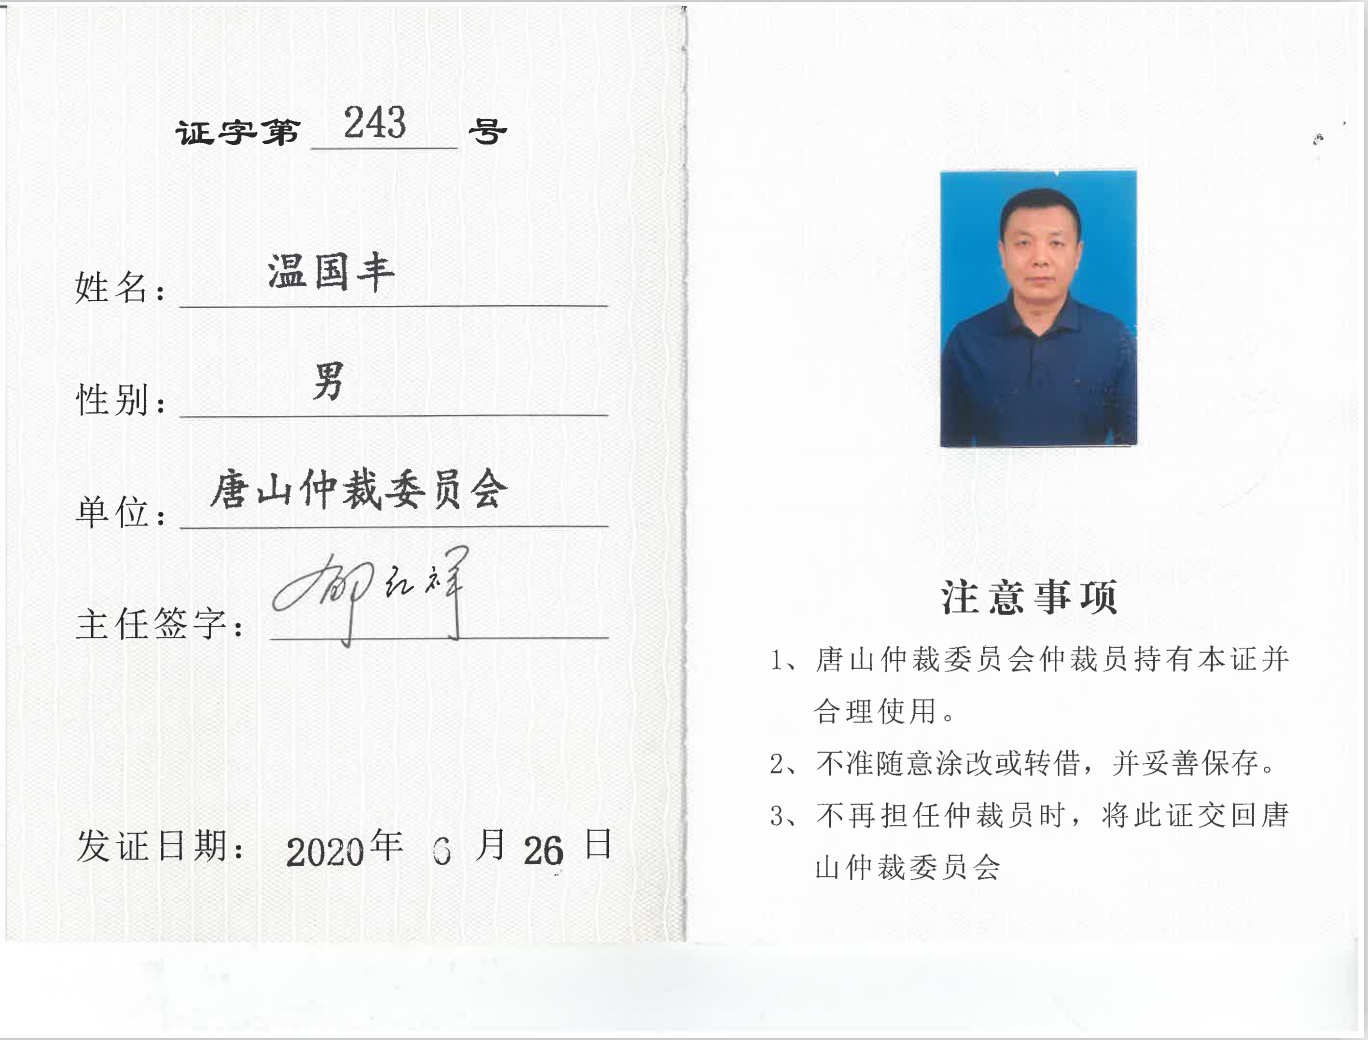 证字第 243 号
姓名：温国丰
性别：男
单位：唐山仲裁委员会
主任签字：红祥
发证日期：2020年 6 月 26 日
注意事项
1、唐山仲裁委员会仲裁员持有本证并
合理使用。
2、不准随意涂改或转借，并妥善保存。
3、不再担任仲裁员时，将此证交回唐
山仲裁委员会